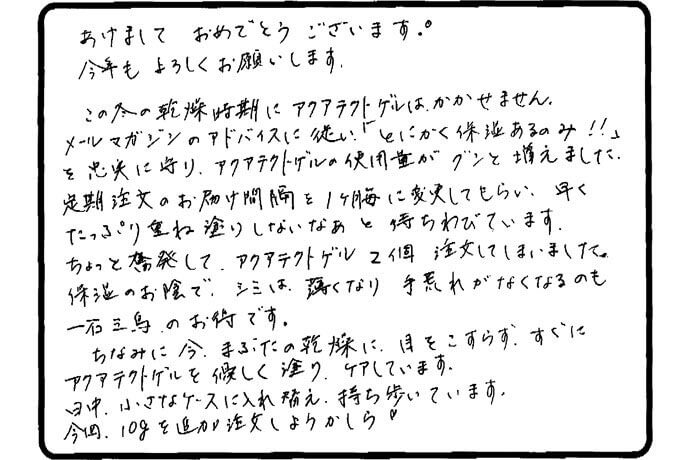 あけまして おめでとう ございます。
今年も よろしくお願いします.
この冬の乾燥時期に アクアテクトゲルは、かかせません.
メールマガジンのアドバイスに従い「とにかく保湿あるのみ!!」
を忠実に守り、アクアテクトゲルの使用量が グンと 増えました.
定期注文のお届け間隔を1ヶ月毎に変更してもらい、早く
たっぷり重ね塗りしないなぁ と 待ちわびています.
ちょっと奮発して、アクアテクトゲル 2個 注文してしまいました。
保湿のお陰で、シミは、薄くなり 手荒れがなくなるのも
一石三鳥 のお得です。
ちなみに 今、まぶたの乾燥に、目をこすらず、すぐに
アクアテクトゲルを優しく塗り、ケアしています.
日中、小さなケースに入れ替え、持ち歩いています.
今回、10gを追加注文しようかしら